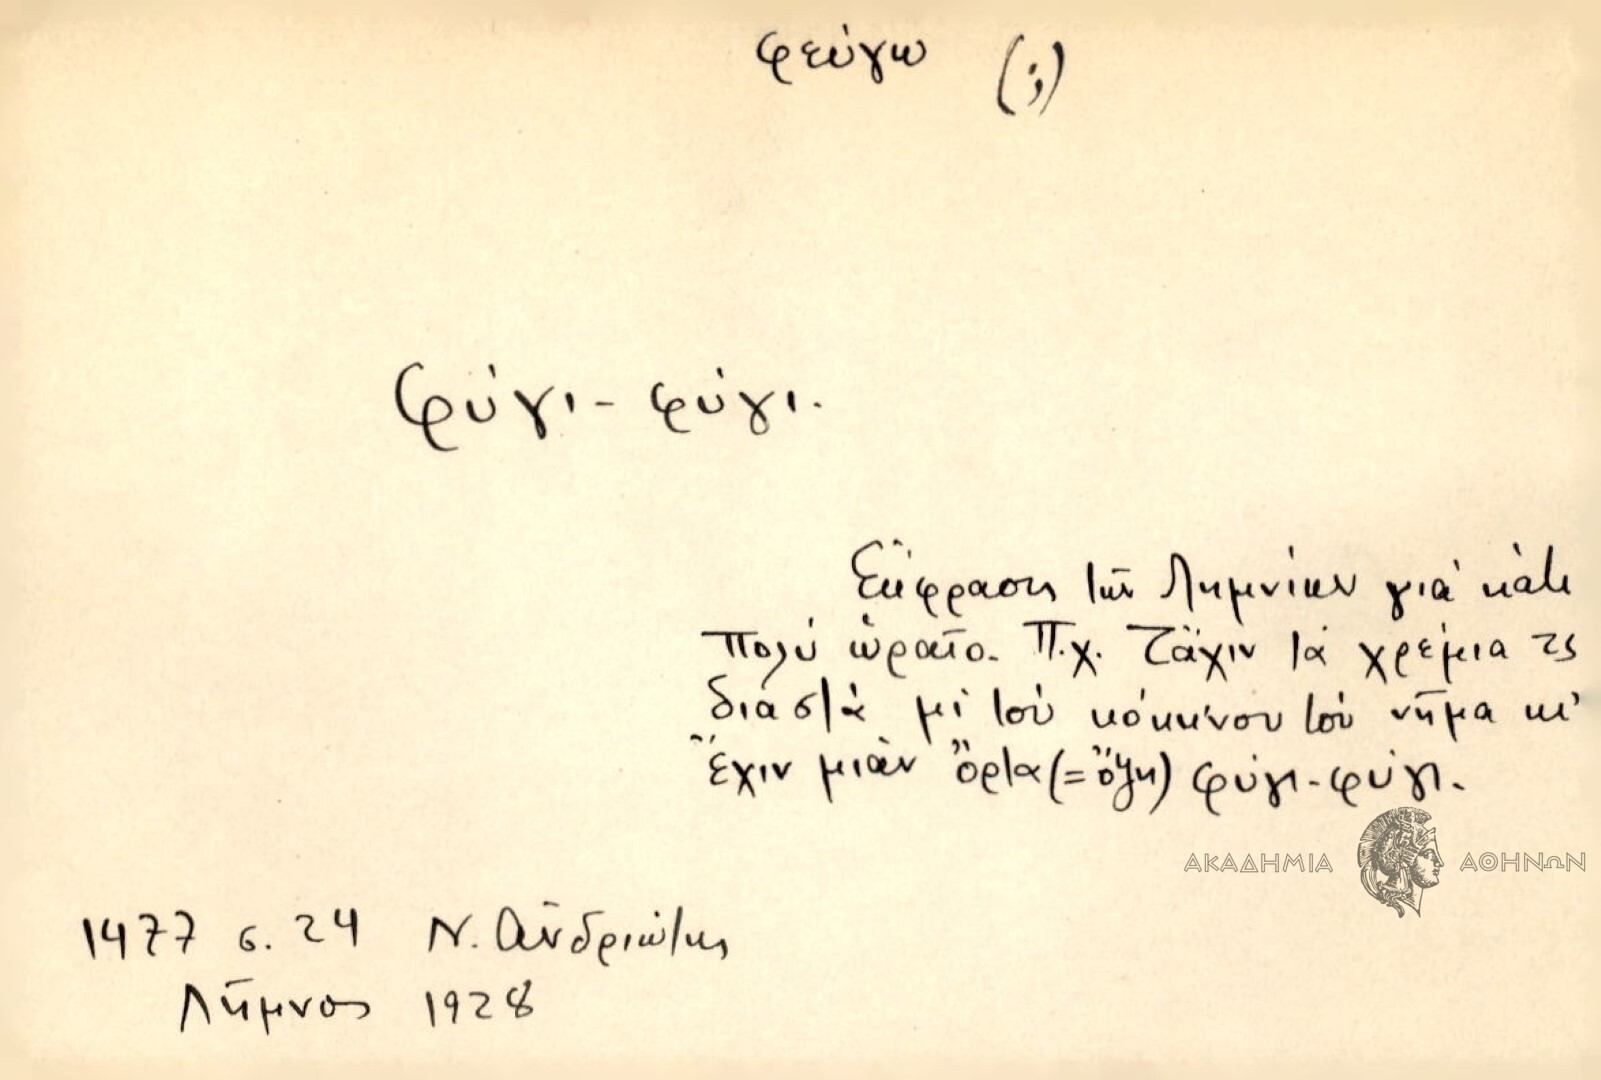 φεύγω (;)
φύγι - φύγι.
Ἔκφραση τῶν Λημνίων γιὰ κάτι
πολύ ὡραῖο. Π.χ. Τἄχιν τὰ χρέμια τς
διαστὰ μὶ τοὺ κόκκινου τοὺ νῆμα κι'
ἔχιν μιὰν ὄρτα (= ὄψη) φύγι-φύγι.
ΑΚΑΔΗΜΙΑ ΑΘΗΝΩΝ
1477 σ. 24 Ν. Ἀνδριώτης
Λῆμνος 1928